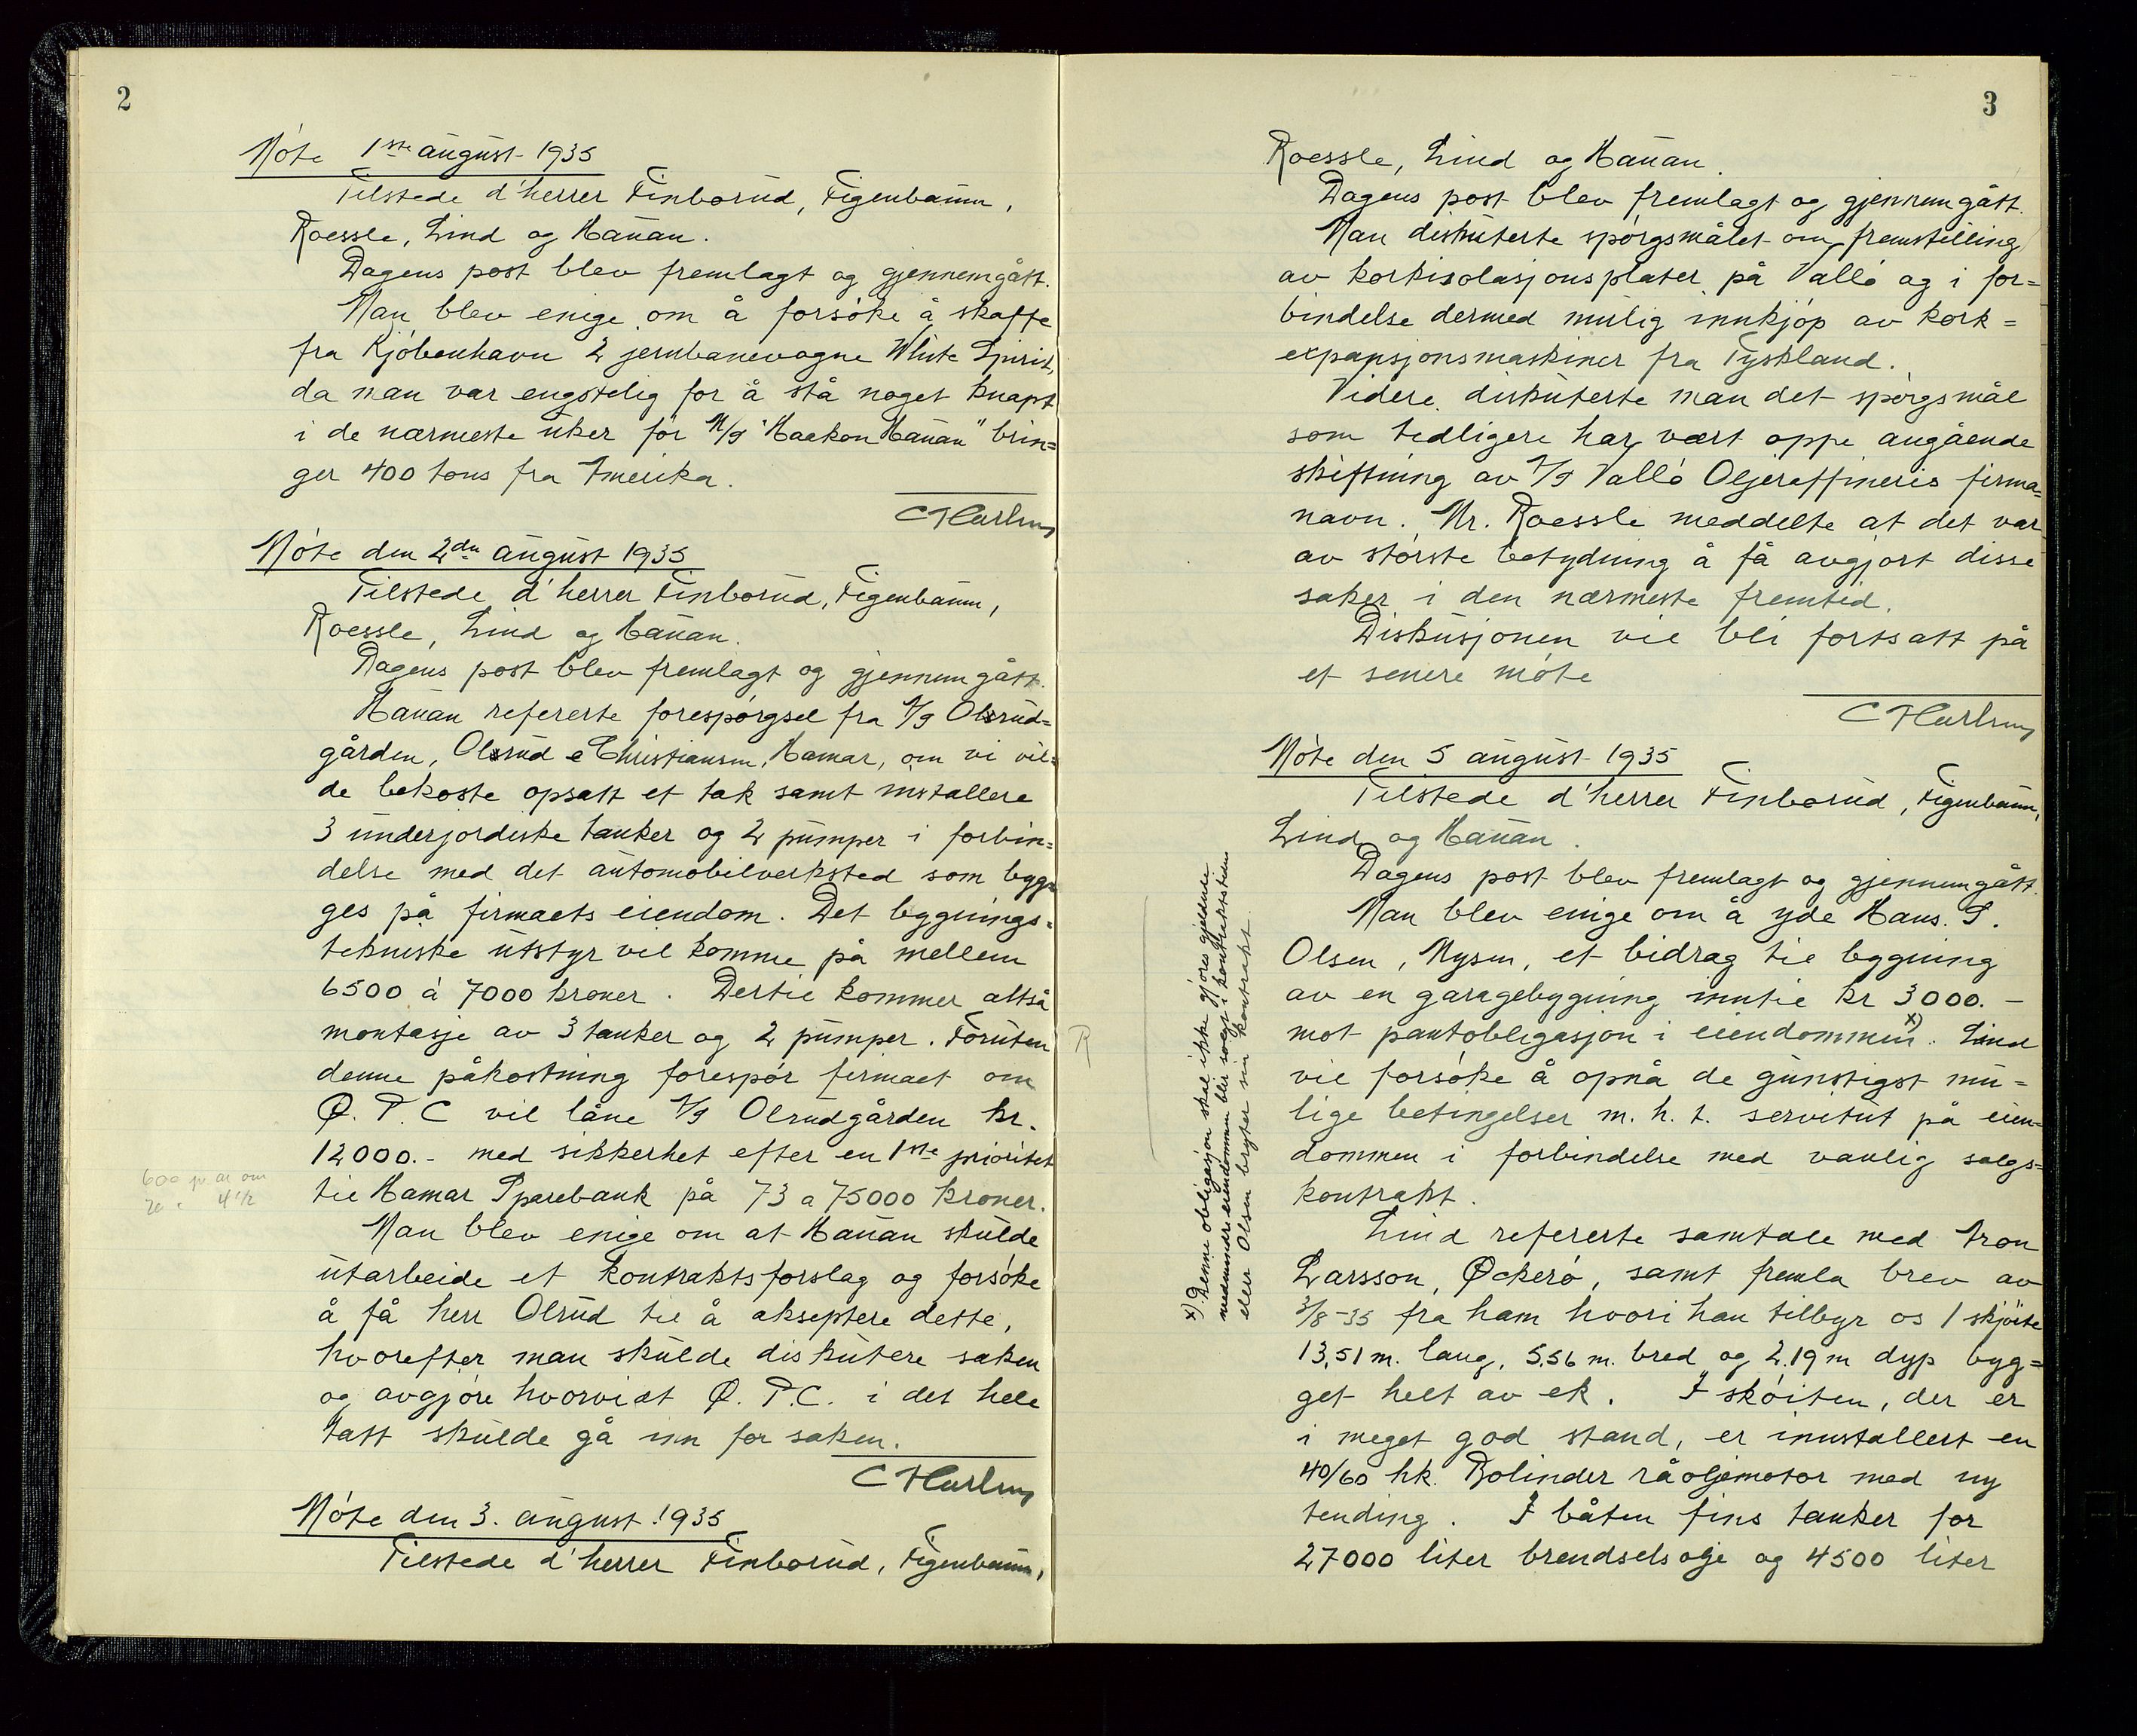 2
Møte 1ste august 1935
Tilstede d'herrer Finborud, Figenbaum,
Roessle, Lind og Hauan.
Dagens post blev fremlagt og gjennemgått.
Man blev enige om å forsøke å skaffe
fra Kjøbenhavn 2 jernbanevogne White Spirit,
da man var engstelig for å stå noget knapt
i de nærmeste uker før M/S "Haakon Hauan" brin=
ger 400 tons fra Amerika.
Møte den 2den august 1935
Tilstede d'herrer Finborud, Figenbaum,
Roessle, Lind og Hauan.
Dagens post blev fremlagt og gjennemgått.
Hauan refererte forespørgsel fra A/S Olsrud=
gården, Olsrud & Christiansen, Hamar, om vi vil=
de bekoste opsatt et tak samt installere
3 underjordiske tanker og 2 pumper i forbin=
delse med det automobilverksted som byg=
ges på firmaets eiendom. Det bygnings=
tekniske utstyr vil komme på mellem
6500 à 7000 kroner. Dertil kommer altså
montasje av 3 tanker og 2 pumper. Foruten
denne påkostning forespør firmaet om
Ø. P. C vil låne A/S Olrudgården kr.
12000.- med sikkerhet efter en 1ste prioritet
til Hamar Sparebank på 73 a 75000 kroner.
600 pr år om
4 1/2
Man blev enige om at Hauan skulde
utarbeide et kontraktsforslag og forsøke
å få herr Olrud til å akseptere dette,
hvorefter man skulde diskutere saken
og avgjøre hvorvidt Ø. P.C. i det hele
tatt skulde gå inn for saken.
Møte den 3. august 1935
Tilstede d'herrer Finborud, Figenbaum,
3
R
Roessle, Lind og Hauan.
Dagens post blev fremlagt og gjennemgått.
Man diskuterte spørgsmålet om fremstilling
av korkisolasjonsplater på Vallø og i for=
bindelse dermed mulig innkjøp av kork=
expansjonsmaskiner fra Tyskland.
Videre diskuterte man det spørgsmål
som tidligere har vært oppe angående
skiftning av A/S Vallø Oljeraffineris firma=
navn. Mr. Roessle meddelte at det var
av største betydning å få avgjort disse
saker i den nærmeste fremtid.
Diskusjonen vil bli fortsatt på
et senere møte
Møte den 5 august 1935
Tilstede d'herrer Finborud, Figenbaum,
Lind og Hauan.
Dagens post blev fremlagt og gjennemgått.
Man blev enige om å yde Hans. S.
Olsen, Mysen, et bidrag til bygning
av en garagebygning inntil kr 3000.-
mot pantobligasjon i eiendommen x). Lind
vil forsøke å opnå de gunstigst mu=
lige betingelser m. h. t. servitut på eien=
dommen i forbindelse med vanlig salgs=
kontrakt.
x) Denne obligasjon skal ikke gjøres gjeldende
medmindre eiendommen blir solgt i kontraktstiden
eller Olsen bryter sin kontrakt.
Lind refererte samtale med Aron
Larsson, Øckerø, samt fremla brev av
3/8-35 fra ham hvori han tilbyr os 1 skjøite
13,51 m. lang, 5.56 m. bred og 2.19 m dyp byg=
get helt av ek. I skøiten, der er
i meget god stand, er innstallert en
40/60 hk. Bolinder råoljemotor med ny
tending. I båten fins tanker for
27000 liter brendselsolje og 4500 liter